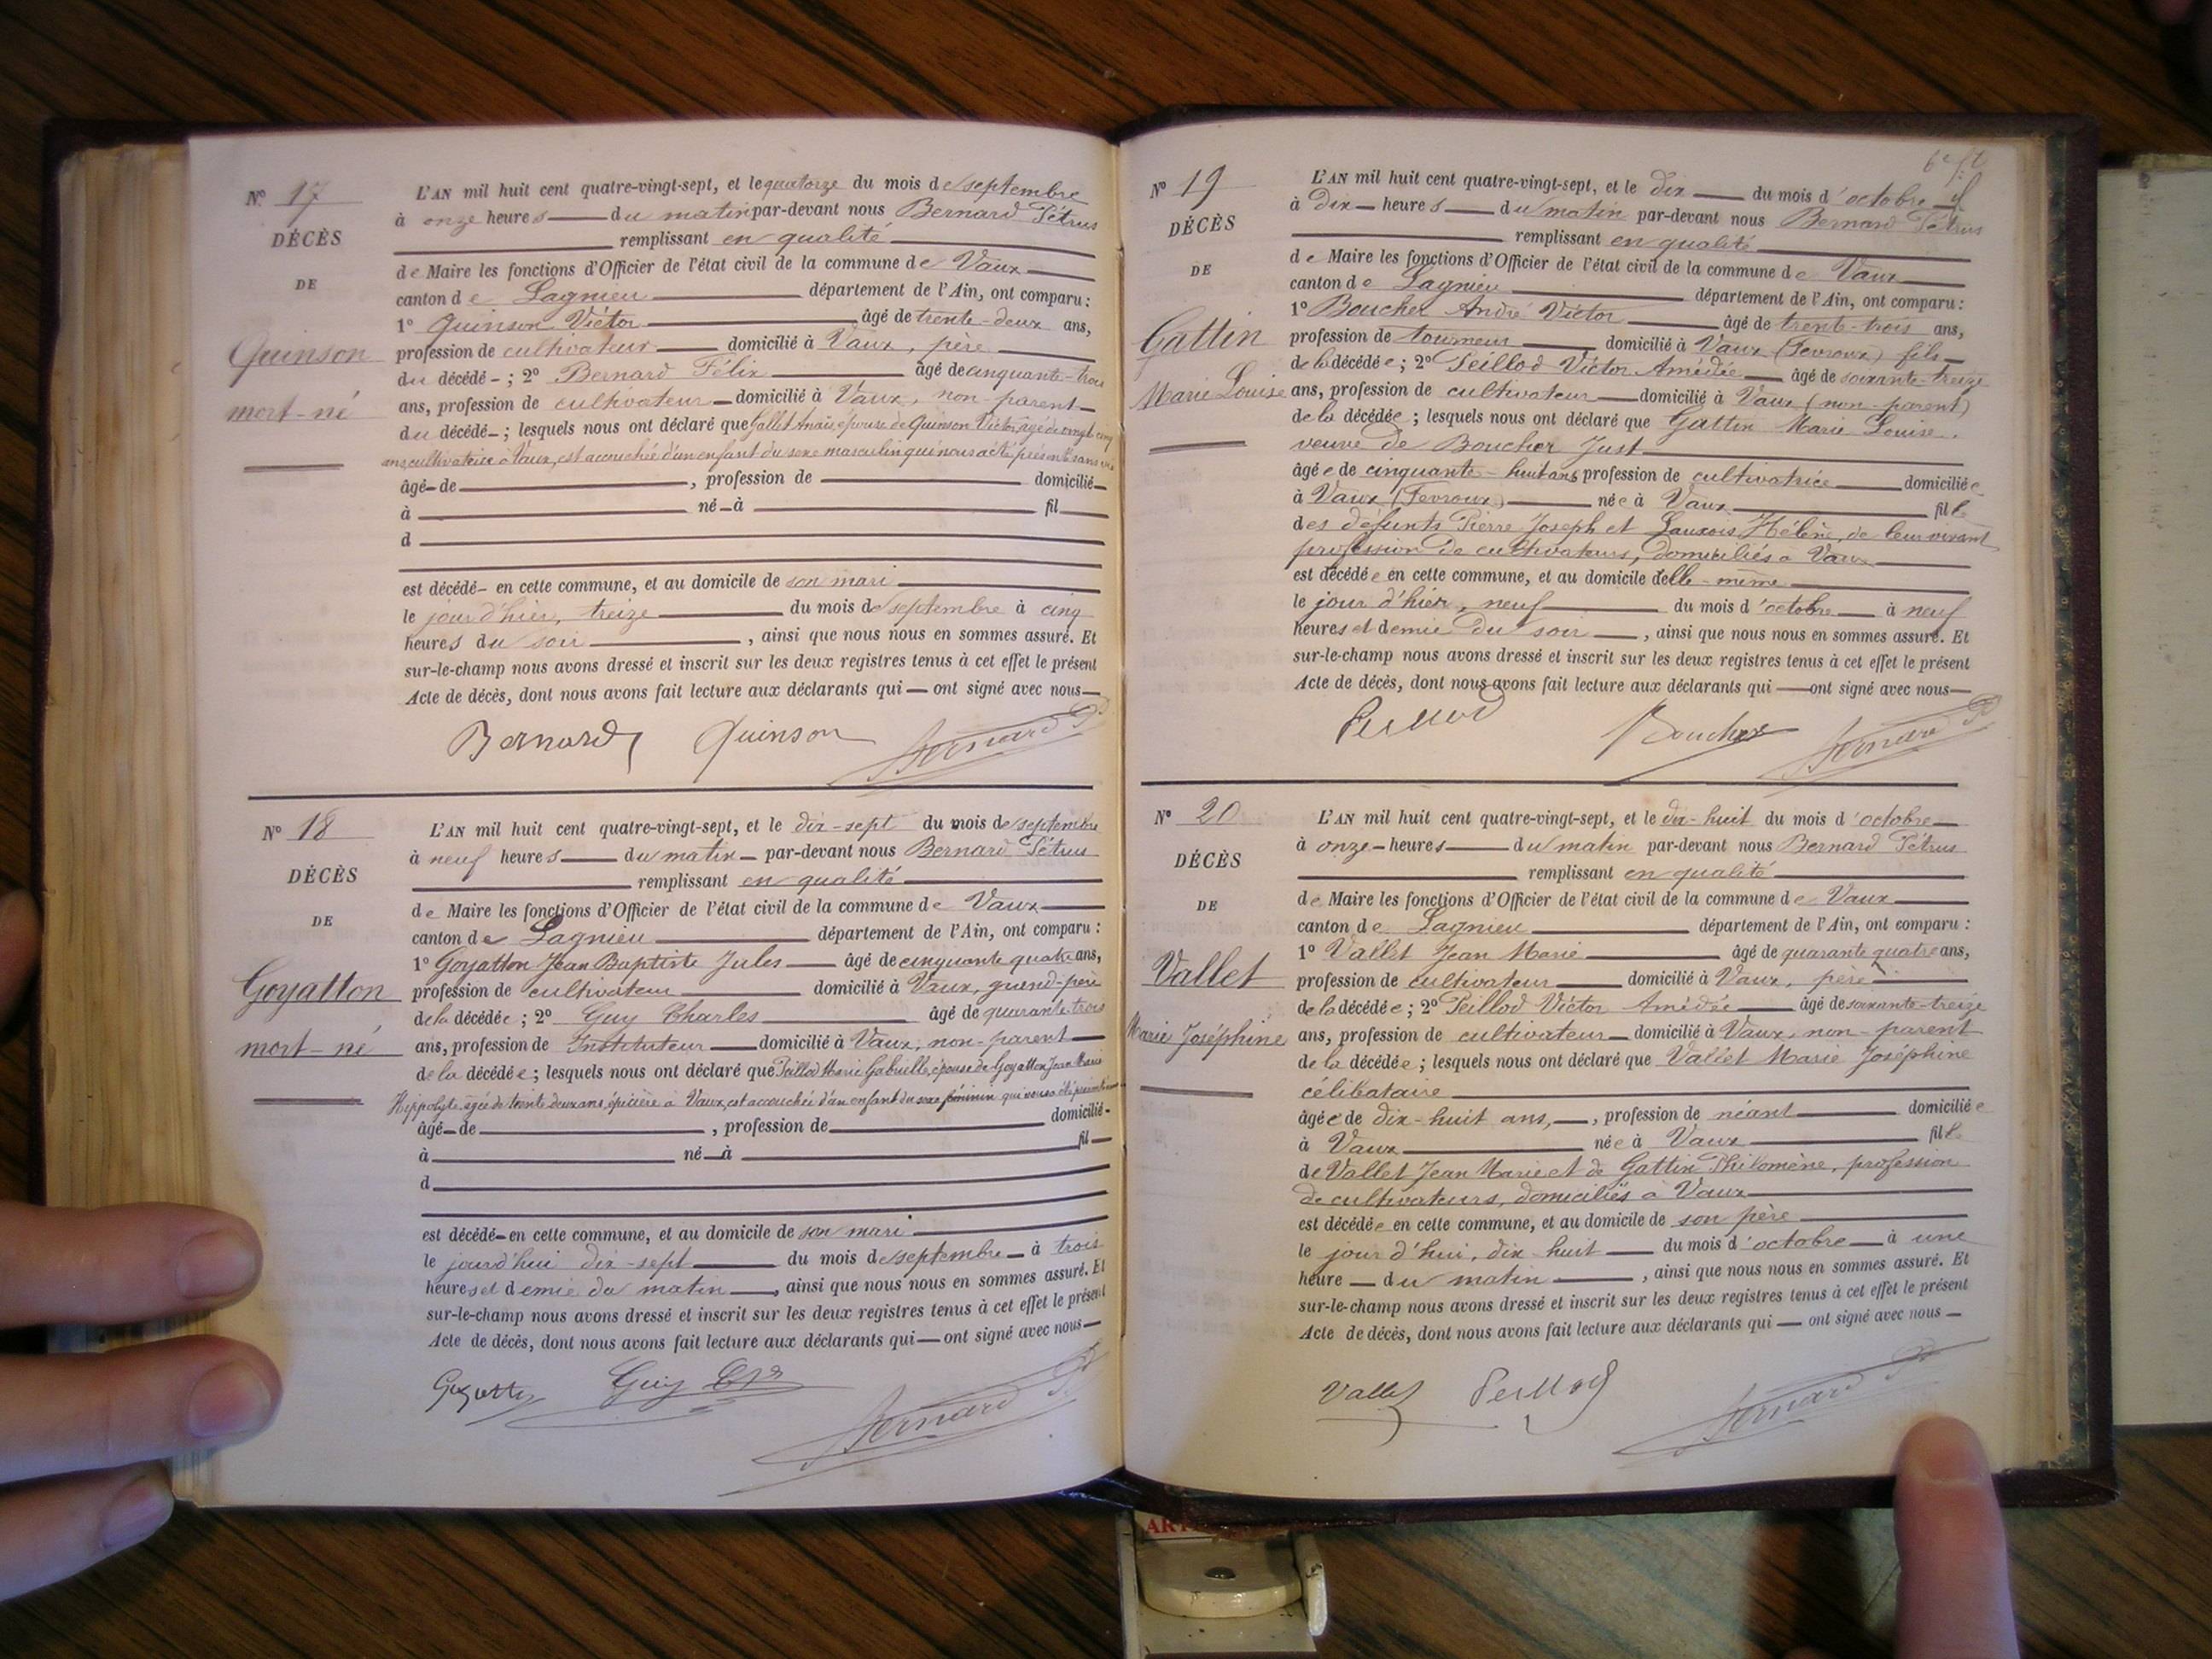 N° 17
DÉCÈS
DE
Quinson
mort-né
L'AN mil huit cent quatre-vingt-sept, et le quatorze du mois de septembre
à onze heures du matin par-devant nous Bernard Pétrus
remplissant en qualité
de Maire les fonctions d'Officier de l'état civil de la commune de Vaux
canton de Lagnieu département de l'Ain, ont comparu :
1° Quinson Victor âgé de trente-deux ans,
profession de cultivateur domicilié à Vaux, père
du décédé ; 2° Bernard Félix âgé de cinquante-trois
ans, profession de cultivateur domicilié à Vaux, non-parent
du décédé ; lesquels nous ont déclaré que Gallet Anaïs, épouse de Quinson Victor, âgée de vingt-cinq
ans, cultivatrice à Vaux, est accouchée d'un enfant du sexe masculin qui nous a été présenté sans vie
âgé de , profession de domicilié
à né à fil
d
est décédé en cette commune, et au domicile de son mari
le jour d'hier, treize du mois de septembre à cinq
heures du soir , ainsi que nous nous en sommes assuré. Et
sur-le-champ nous avons dressé et inscrit sur les deux registres tenus à cet effet le présent
Acte de décès, dont nous avons fait lecture aux déclarants qui — ont signé avec nous
Bernard Quinson Bernard P
N° 18
DÉCÈS
DE
Goyatton
mort-né
L'AN mil huit cent quatre-vingt-sept, et le dix-sept du mois de septembre
à neuf heures du matin par-devant nous Bernard Pétrus
remplissant en qualité
de Maire les fonctions d'Officier de l'état civil de la commune de Vaux
canton de Lagnieu département de l'Ain, ont comparu :
1° Goyatton Jean Baptiste Jules âgé de cinquante quatre ans,
profession de cultivateur domicilié à Vaux, grand-père
de la décédée ; 2° Guy Charles âgé de quarante-trois
ans, profession de Instituteur domicilié à Vaux, non-parent
de la décédée ; lesquels nous ont déclaré que Peillod Marie Gabrielle, épouse de Goyatton Jean Marie
Hippolyte âgée de trente deux ans, épicière à Vaux, est accouchée d'un enfant du sexe féminin qui nous a été présenté
âgé de , profession de domicilié
à né à fil
d
est décédé en cette commune, et au domicile de son mari
le jourd'hui dix-sept du mois de septembre à trois
heures et demie du matin , ainsi que nous nous en sommes assuré. Et
sur-le-champ nous avons dressé et inscrit sur les deux registres tenus à cet effet le présent
Acte de décès, dont nous avons fait lecture aux déclarants qui — ont signé avec nous
Goyatton Guy Ch Bernard P
N° 19
DÉCÈS
DE
Gattin
Marie Louise
L'AN mil huit cent quatre-vingt-sept, et le dix du mois d'octobre
à dix heures du matin par-devant nous Bernard Pétrus
remplissant en qualité
de Maire les fonctions d'Officier de l'état civil de la commune de Vaux
canton de Lagnieu département de l'Ain, ont comparu :
1° Boucher André Victor âgé de trente-trois ans,
profession de tourneur domicilié à Vaux (Fevroux) fils
de la décédée ; 2° Peillod Victor Amédée âgé de soixante-treize
ans, profession de cultivateur domicilié à Vaux (non-parent)
de la décédée ; lesquels nous ont déclaré que Gattin Marie Louise.
veuve de Boucher Just
âgée de cinquante-huit ans profession de cultivatrice domiciliée
à Vaux (Fevroux) née à Vaux fille
des défunts Pierre Joseph et Hélène, de leur vivant
profession de cultivateurs, domiciliés à Vaux
est décédée en cette commune, et au domicile d'elle-même
le jour d'hier, neuf du mois d'octobre à neuf
heures et demie du soir , ainsi que nous nous en sommes assuré. Et
sur-le-champ nous avons dressé et inscrit sur les deux registres tenus à cet effet le présent
Acte de décès, dont nous avons fait lecture aux déclarants qui — ont signé avec nous
Peillod Boucher Bernard P
N° 20
DÉCÈS
DE
Vallet
Marie Joséphine
L'AN mil huit cent quatre-vingt-sept, et le dix-huit du mois d'octobre
à onze heures du matin par-devant nous Bernard Pétrus
remplissant en qualité
de Maire les fonctions d'Officier de l'état civil de la commune de Vaux
canton de Lagnieu département de l'Ain, ont comparu :
1° Vallet Jean Marie âgé de quarante quatre ans,
profession de cultivateur domicilié à Vaux, père
de la décédée ; 2° Peillod Victor Amédée âgé de soixante-treize
ans, profession de cultivateur domicilié à Vaux, non-parent
de la décédée ; lesquels nous ont déclaré que Vallet Marie Joséphine
célibataire
âgée de dix-huit ans, , profession de néant domiciliée
à Vaux née à Vaux fille
de Vallet Jean Marie et de Gattin Philomène, profession
de cultivateurs, domiciliés à Vaux
est décédée en cette commune, et au domicile de son père
le jour d'hui, dix-huit du mois d'octobre à une
heure du matin , ainsi que nous nous en sommes assuré. Et
sur-le-champ nous avons dressé et inscrit sur les deux registres tenus à cet effet le présent
Acte de décès, dont nous avons fait lecture aux déclarants qui — ont signé avec nous
Vallet Peillod Bernard P